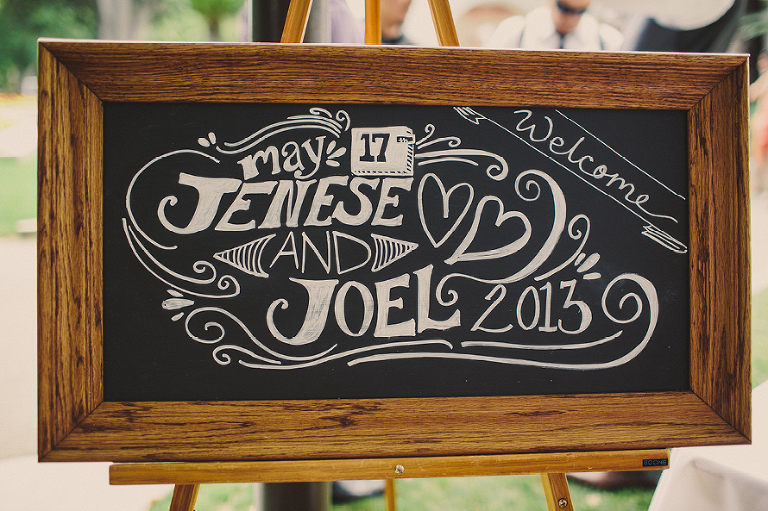 Welcome
may 17
JENESE
AND
JOEL 2013